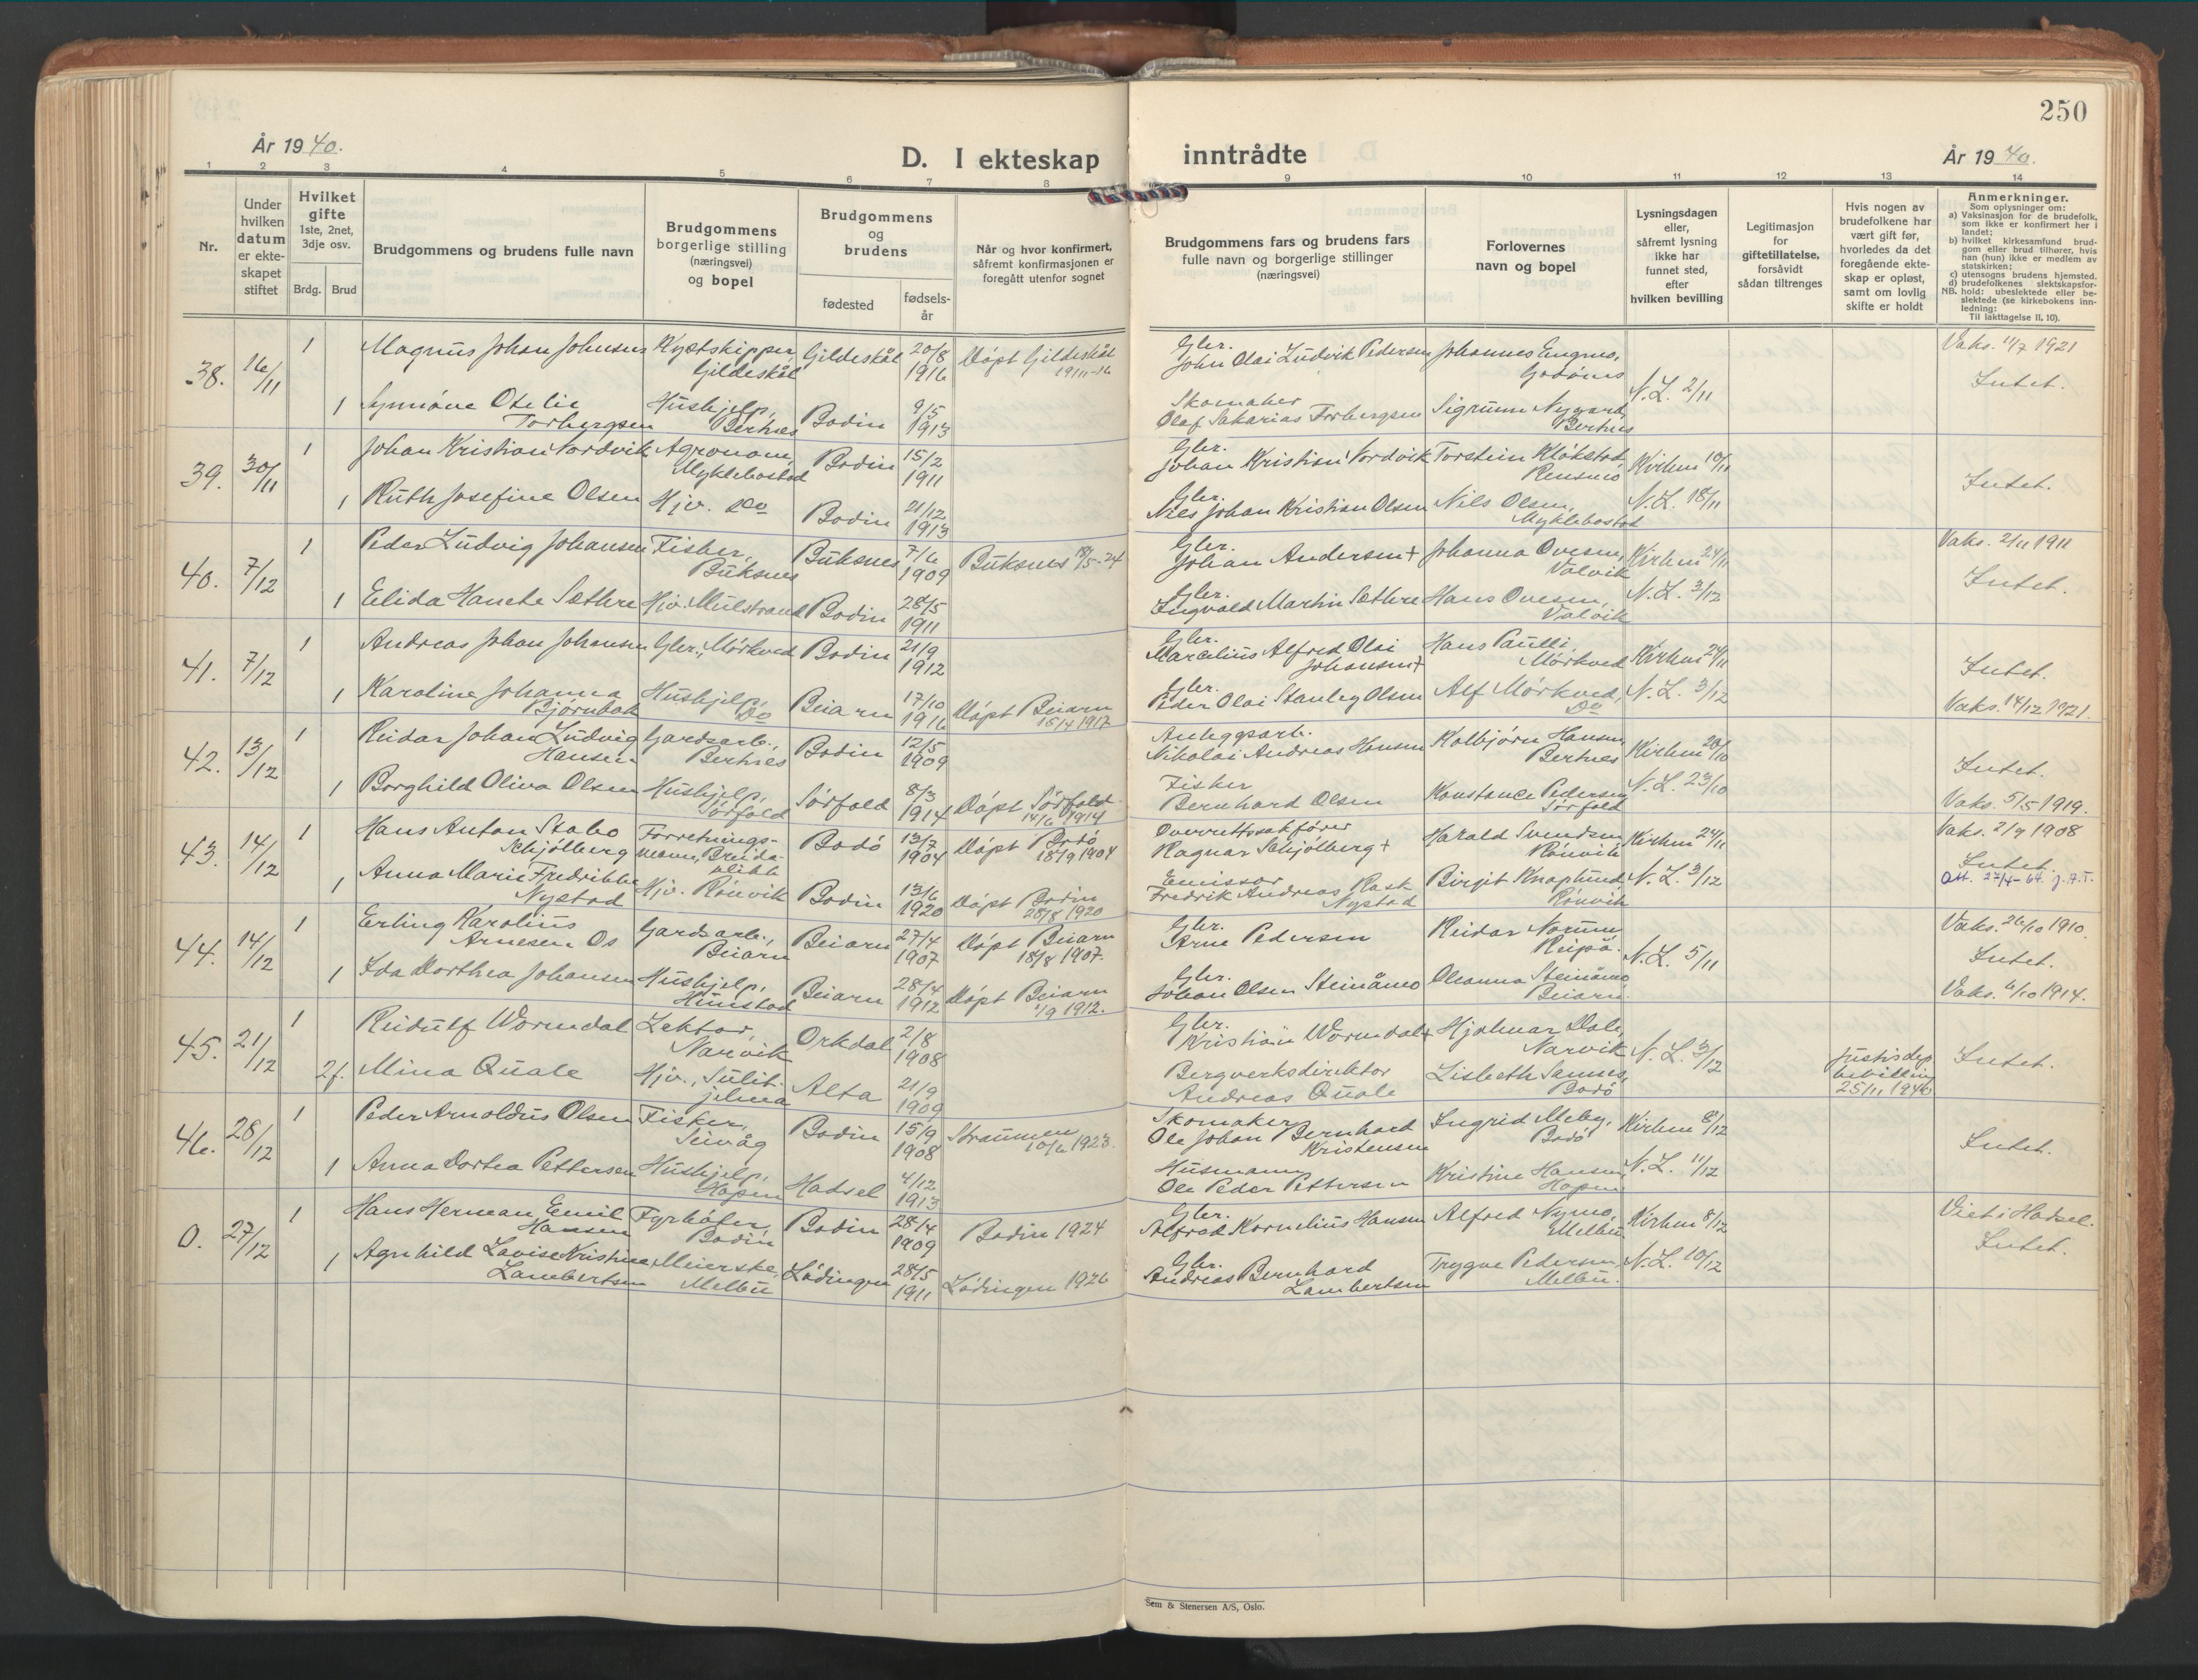 250
År 1940.
D. I ekteskap
inntrådte
År 1940.
1 2 3 4 5 6 7 8 9 10 11 12 13 14
Nr.
Under
hvilken
datum
er ekte-
skapet
stiftet
Hvilket
gifte
1ste, 2net,
3dje osv.
Brdg. Brud
Brudgommens og brudens fulle navn
Brudgommens
borgerlige stilling
(næringsvei)
og bopel
Brudgommens
og
brudens
fødested
fødsels-
år
Når og hvor konfirmert,
såfremt konfirmasjonen er
foregått utenfor sognet
Brudgommens fars og brudens fars
fulle navn og borgerlige stillinger
(næringsvei)
Forlovernes
navn og bopel
Lysningsdagen
eller,
såfremt lysning
ikke har
funnet sted,
efter
hvilken bevilling
Legitimasjon
for
giftetillatelse,
forsåvidt
sådan tiltrenges
Hvis nogen av
brudefolkene har
vært gift før,
hvorledes da det
foregående ekte-
skap er opløst,
samt om lovlig
skifte er holdt
Anmerkninger.
Som oplysninger om:
a) Vaksinasjon for de brudefolk,
som ikke er konfirmert her i
landet;
b) hvilket kirkesamfund brud-
gom eller brud tilhører, hvis
han (hun) ikke er medlem av
statskirken;
c) utensogns brudens hjemsted.
d) brudefolkenes slektskapsfor-
NB. hold: ubeslektede eller be-
slektede (se kirkebokens inn-
ledning:
Til iakttagelse II, 10).
38. 16/11 1 Magnus Johan Johnsen Kystskipper, Gildeskål Gildeskål 20/8 1916 Døpt Gildeskål 19/11-16
Gbr. John Olai Ludvik Pedersen Johannes Godønes N.L. 2/11 Vaks. 11/7 1921 Intet.
1 Synnøve Otelie Torbergsen Hushjelp, Bertnes Bodin 9/5 1913
Skomaker Olaf Sakarias Torbergsen Sigrunn Nygård, Bertnes
39. 30/11 1 Johan Kristian Nordvik Agronom, Myklebostad Bodin 15/2 1911
Gbr. Johan Kristian Nordvik Torstein Kløkstad Kirken 10/11 Intet.
1 Ruth Josefine Olsen Hjv. Do Bodin 21/12 1913
Gbr. Nils Johan Kristian Olsen Nils Olsen, Myklebostad N.L. 18/11
40. 7/12 1 Peder Ludvig Johansen Fisker, Buksnes Buksnes 7/6 1909 Buksnes 18/5-24
Gbr. Johan Andersen + Johanna Ovesen, Valvik Kirken 24/11 Vaks. 2/11 1911 Intet.
1 Elida Hanete Sæthre Hjv. Mulstrand Bodin 28/5 1911
Gbr. Ingvald Martin Sæthre Hans Ovesen, Valvik N.L. 3/12
41. 7/12 1 Andreas Johan Johansen Gbr., Mørkved Bodin 21/9 1912
Gbr. Marcelius Alfred Olai Johansen + Hans Paulli, Mørkved Kirken 24/11 Intet.
1 Karoline Johanna Bjørnbak Hushjelp, Do Beiarn 17/10 1916 Døpt Beiarn 15/4 1917
Gbr. Peder Olai Stanley Olsen Alf Mørkved, Do N.L. 3/12 Vaks. 14/12 1921.
42. 13/12 1 Reidar Johan Ludvig Hansen Gardsarb., Bertnes Bodin 12/5 1909
Anleggsarb. Nikolai Andreas Hansen Kolbjørn Hansen Bertnes Kirken 20/10 Intet.
1 Borghild Oliva Olsen Hushjelp, Sørfold Sørfold 8/3 1914 Døpt Sørfold 14/6 1914
Fisker Bernhard Olsen Konstance Pedersen Sørfold N.L. 23/10 Vaks. 5/5 1919.
43. 14/12 1 Hans Anton Stabo Schjølberg Forretnings- mann, Breida- blikk Bodø 13/7 1904 Døpt Bodø 18/9 1904
Overrettssakfører Ragnar Schjølberg + Harald Svendsen Rønvik Kirken 24/11 Vaks. 2/9 1908 Intet.
1 Anna Marie Fredrikke Nystad Hjv. Rønvik Bodin 13/6 1920 Døpt Bodin 28/8 1920
Emissær Fredrik Andreas Rask Nystad Birgit Knaplund Rønvik N.L. 3/12 Att. 27/4-64. J.A.T.
44. 14/12 1 Erling Karolius Arnesen Os Gardsarb., Beiarn Beiarn 27/4 1907 Døpt Beiarn 18/8 1907.
Gbr. Arne Pedersen Reidar Norum, Reipå. N.L. 5/11 Vaks. 26/10 1910. Intet.
1 Ida Dorthea Johansen Hushjelp, Hunstad Beiarn 28/4 1912 Døpt Beiarn 1/9 1912.
Gbr. Johan Olsen Steinåmo Oleanna Steinåmo Beiarn. Vaks. 6/10 1914.
45. 21/12 1 Reidulf Wormdal Lektor, Narvik Orkdal 2/8 1908
Gbr. Kristian Wormdal + Hjalmar Dale, Narvik N.L. 3/12 Intet.
2f. Mina Quale Hjv., Sulit- jelma Alta 21/9 1909
Bergverksdirektør Andreas Quale Lisbeth Bodø Justisdep. bevilling 25/11 1940
46. 28/12 1 Peder Arnoldus Olsen Fisker, Seivåg Bodin 15/9 1908 Straumen 10/6 1923.
Skomaker Ole Johan Bernhard Kristensen Ingrid Meby, Bodø Kirken 8/12 Intet.
1 Anna Dortea Pettersen Hushjelp, Hopen Hadsel 4/12 1913
Husmann Ole Peder Pettersen Kristine Hansen, Hopen N.L. 11/12
0. 27/12 1 Hans Herman Emil Hansen Fyrbøter, Bodin Bodin 28/4 1909 Bodin 1924
Gbr. Alfred Kornelius Hansen Alfred Nymo, Melbu Kirken 8/12 Viet i Hadsel. Intet.
1 Agnhild Lovise Kristine Lambertsen Meierske, Melbu Lødingen 28/5 1911 Lødingen 1926
Gbr. Andreas Bernhard Lambertsen Trygve Pedersen, Melbu. N.L. 10/12
Sem & Stenersen A/S, Oslo.